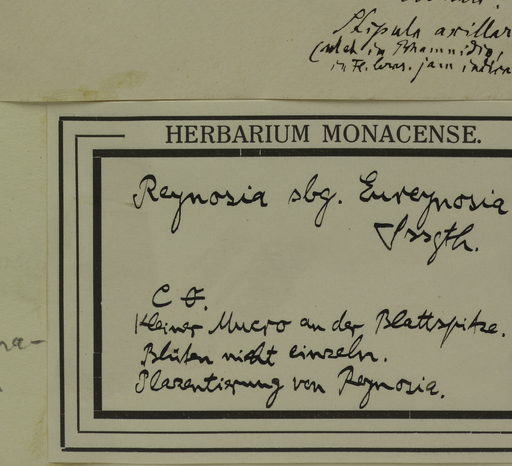 Stipula axillar
in Rhamnidio,
jam
HERBARIUM MONACENSE.
Reynosia sbg. Eureynosia
C F.
Kleiner Mucro an der Blattspitze.
Blüten nicht einzeln.
Plazentierung von Reynosia.